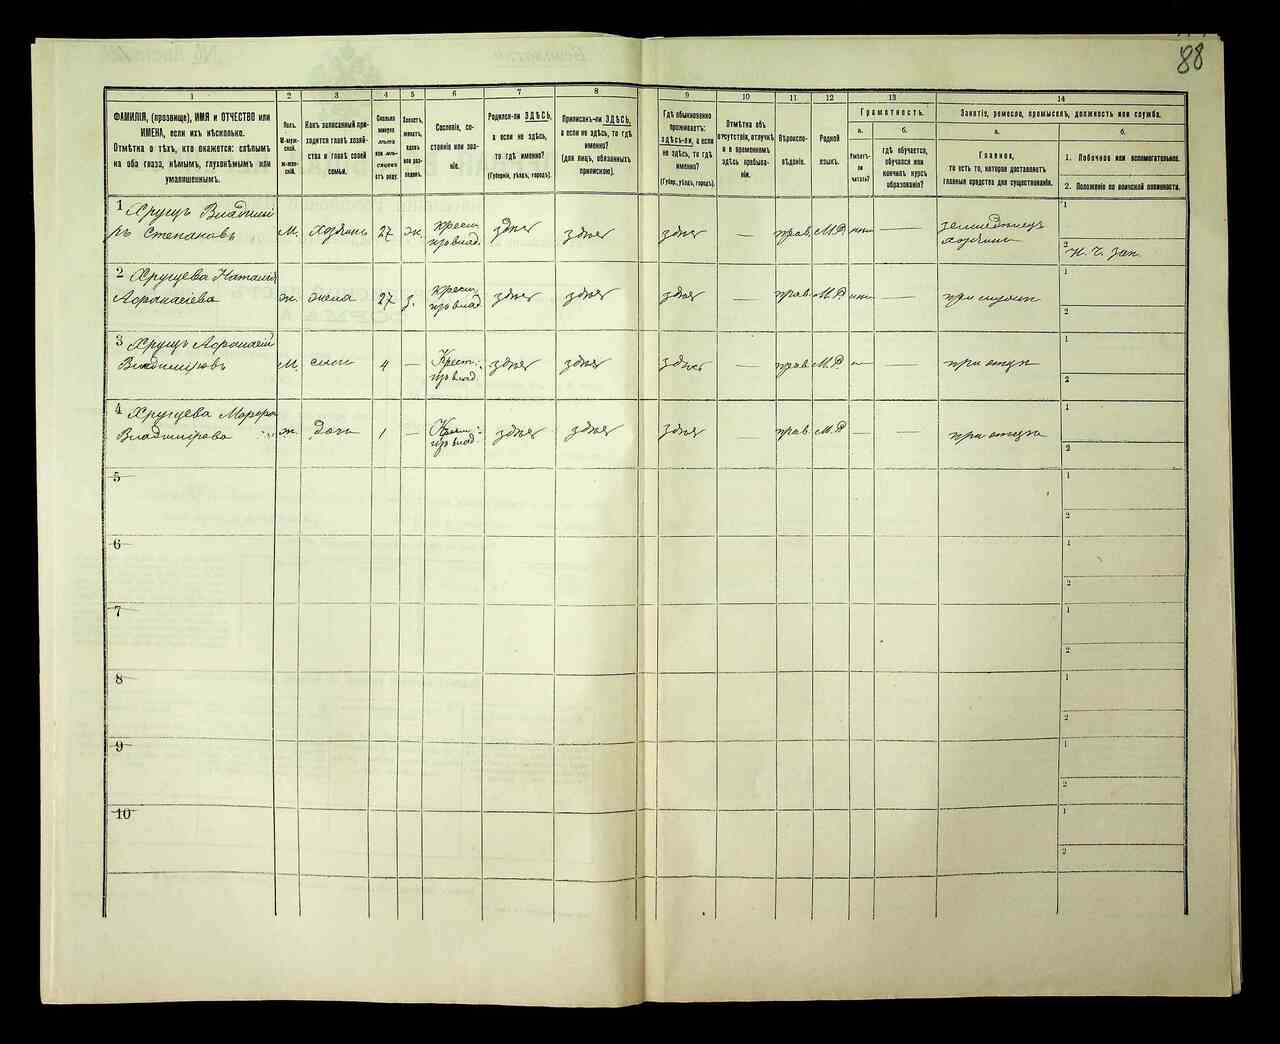 88
1 2 3 4 5 6 7 8 9 10 11 12 13 14
ФАМИЛІЯ, (прозвище), ИМЯ и ОТЧЕСТВО или
ИМЕНА, если ихъ нѣсколько.
Отмѣтка о тѣхъ, кто окажется: слѣпымъ
на оба глаза, нѣмымъ, глухонѣмымъ или
умалишеннымъ.
Полъ.
М-мужской.
ж-женскій.
Какъ записанный при-
ходится главѣ хозяй-
ства и главѣ своей
семьи.
Сколько
минуло
лѣтъ
или мѣ-
сяцевъ
отъ роду.
Холостъ,
женатъ,
вдовъ
или раз-
веденъ.
Сословіе, со-
стояніе или зва-
ніе.
Родился-ли ЗДѢСЬ,
а если не здѣсь,
то гдѣ именно?
(Губернія, уѣздъ, городъ).
Приписанъ-ли ЗДѢСЬ,
а если не здѣсь, то гдѣ
именно?
(для лицъ, обязанныхъ
припискою).
Гдѣ обыкновенно
проживаетъ:
здѣсь-ли, а если
не здѣсь, то гдѣ
именно?
(Губер., уѣздъ, городъ).
Отмѣтка объ
отсутствіи, отлучкѣ
и о временномъ
здѣсь пребыва-
ніи.
Вѣроиспо-
вѣданіе.
Родной
языкъ.
Грамотность.
а.
Умѣетъ-
ли
читать?
б.
гдѣ обучается,
обучался или
кончилъ курсъ
образованія?
Занятіе, ремесло, промыселъ, должность или служба.
а.
Главное,
то есть то, которое доставляетъ
главныя средства для существованія.
б.
1. Побочное или вспомогательное.
2. Положеніе по воинской повинности.
1 Хрущъ Владими
ръ Степановъ М. хозяинъ 27 ж. крест. изъ влад. здѣсь здѣсь здѣсь — прав. М.Р. — земледѣлецъ хозяинъ 1
2 Н. Ч. зап.
2 Хрущева Наталія
Афанасіева ж. жена 27 з. крест. изъ влад. здѣсь здѣсь здѣсь — прав. М.Р. — при мужѣ 1
2
3 Хрущъ Афанасій
Владиміровъ М. сынъ 4 — Крест. изъ влад. здѣсь здѣсь здѣсь — прав. М.Р. — — при отцѣ 1
2
4 Хрущева Марфа
Владимірова ж. дочь 1 — Крест. изъ влад. здѣсь здѣсь здѣсь прав. М.Р. — при отцѣ 1
2
5 1
2
6 1
2
7 1
2
8 1
2
9 1
2
10 1
2